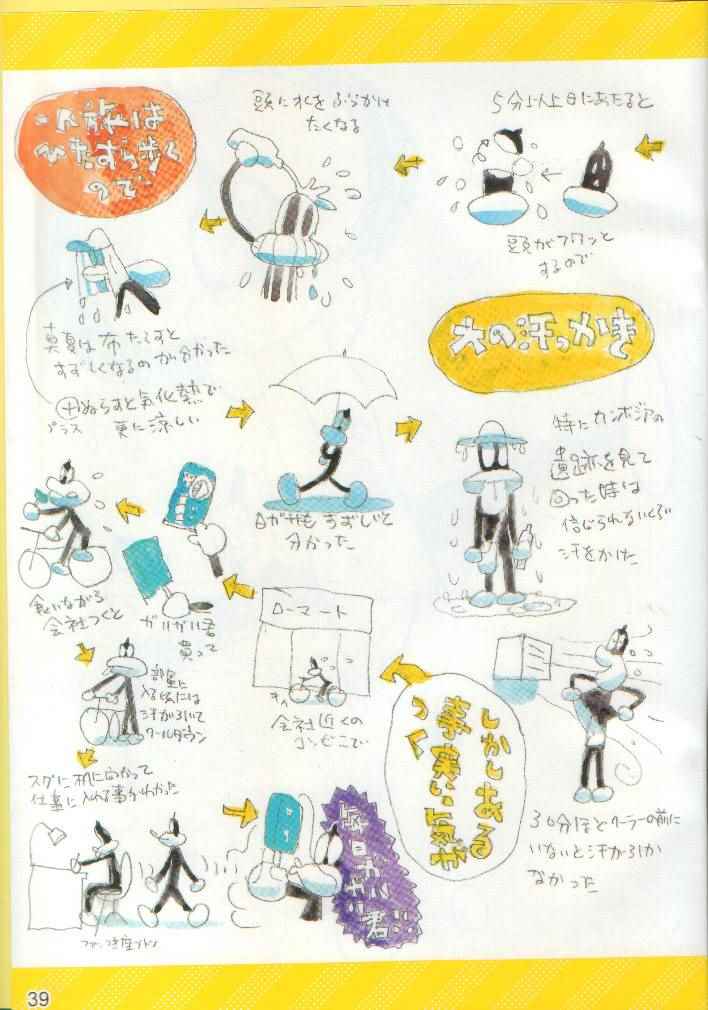 5分以上日にあたると
頭がフワッと
するので
頭に水をぶっかけ
たくなる
旅は
ひたすら歩く
ので
真夏は布たらすと
すずしくなるのが分かった
＋ぬらすと気化熱で
プラス 更に涼しい
日ガサもすずしいと
分かった
大の汗っかき
特にカンボジアの
遺跡を見て
回った時は
信じられないくらい
汗をかけた
30分ほどクーラーの前に
いないと汗が引か
なかった
しかしある
事実に気が
つく
ローマート
会社近くの
コンビニで
ガリガリ君
買って
食いながら
会社つくと
部屋に
入る頃には
汗が引いて
クールダウン
スグに机に向かって
仕事に入れる事がわかった
毎日ガリガリ君!!
39